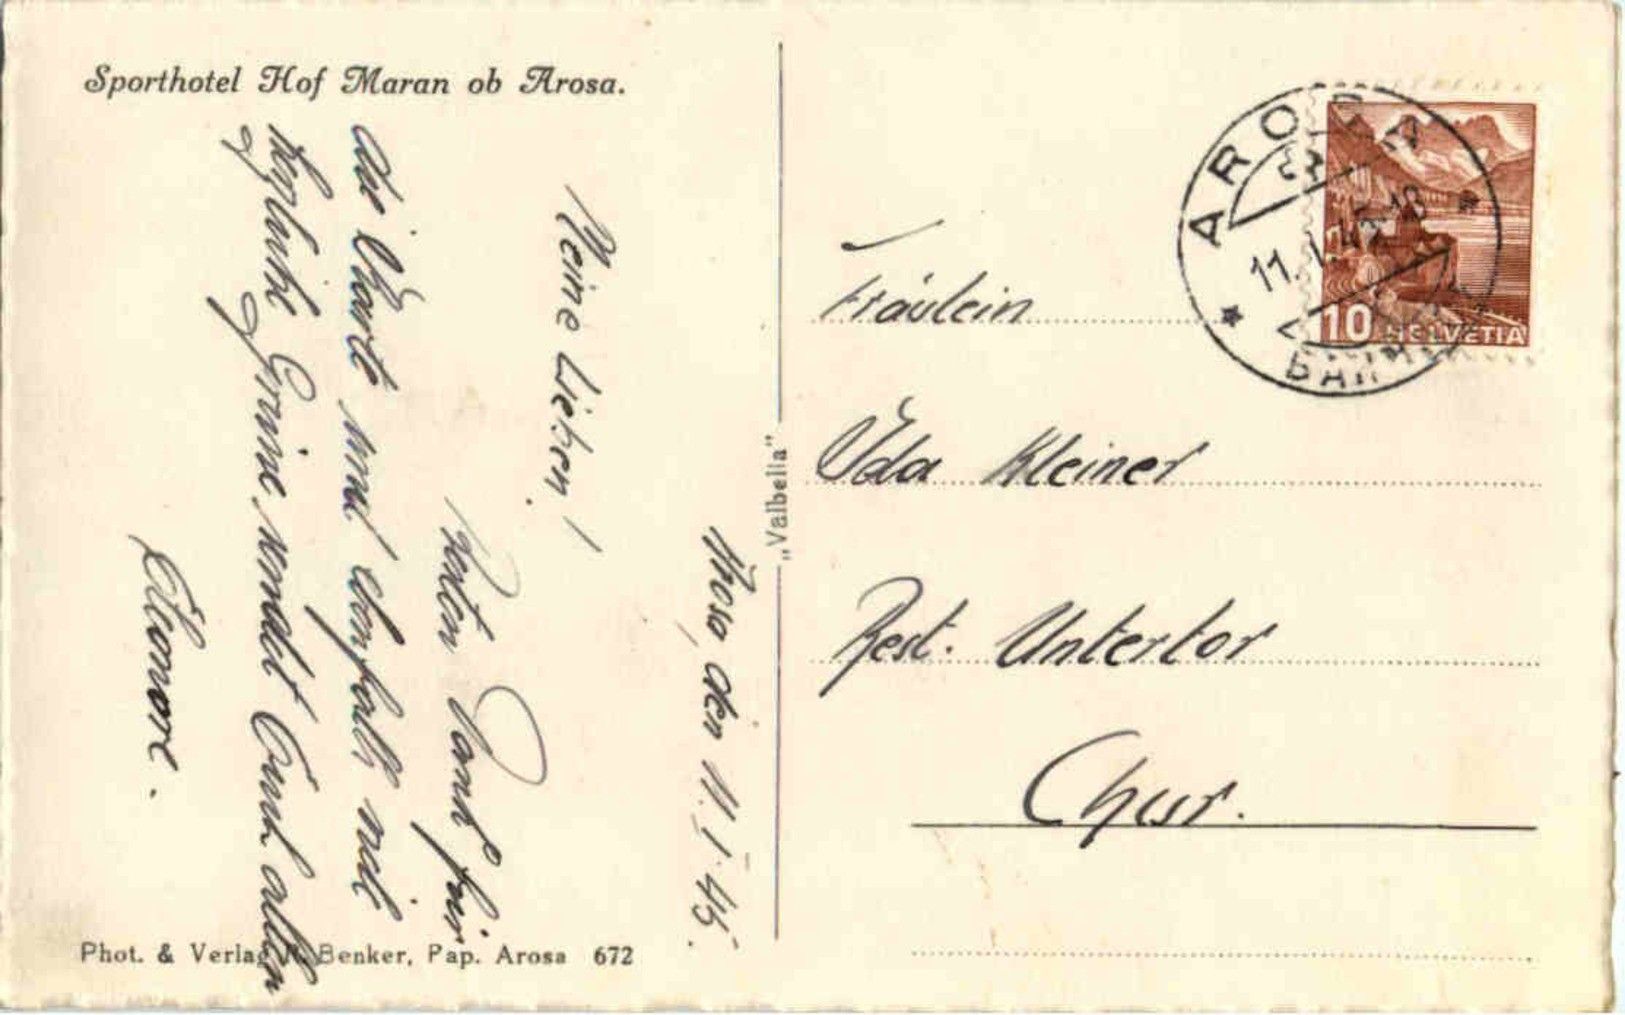 Sporthotel Hof Maran ob Arosa.
Arosa, den 11. I. 45.
Meine Lieben!
Besten Dank für
die Karte und ebenfalls viele
herzliche Grüsse, sendet Euch allen
Eleonore.
Phot. & Verlag Benker, Pap. Arosa 672
„Valbella"
AROSA
11. I. 45 18
10 HELVETIA
Fräulein
Ida Kleiner
Rest. Untertor
Chur.